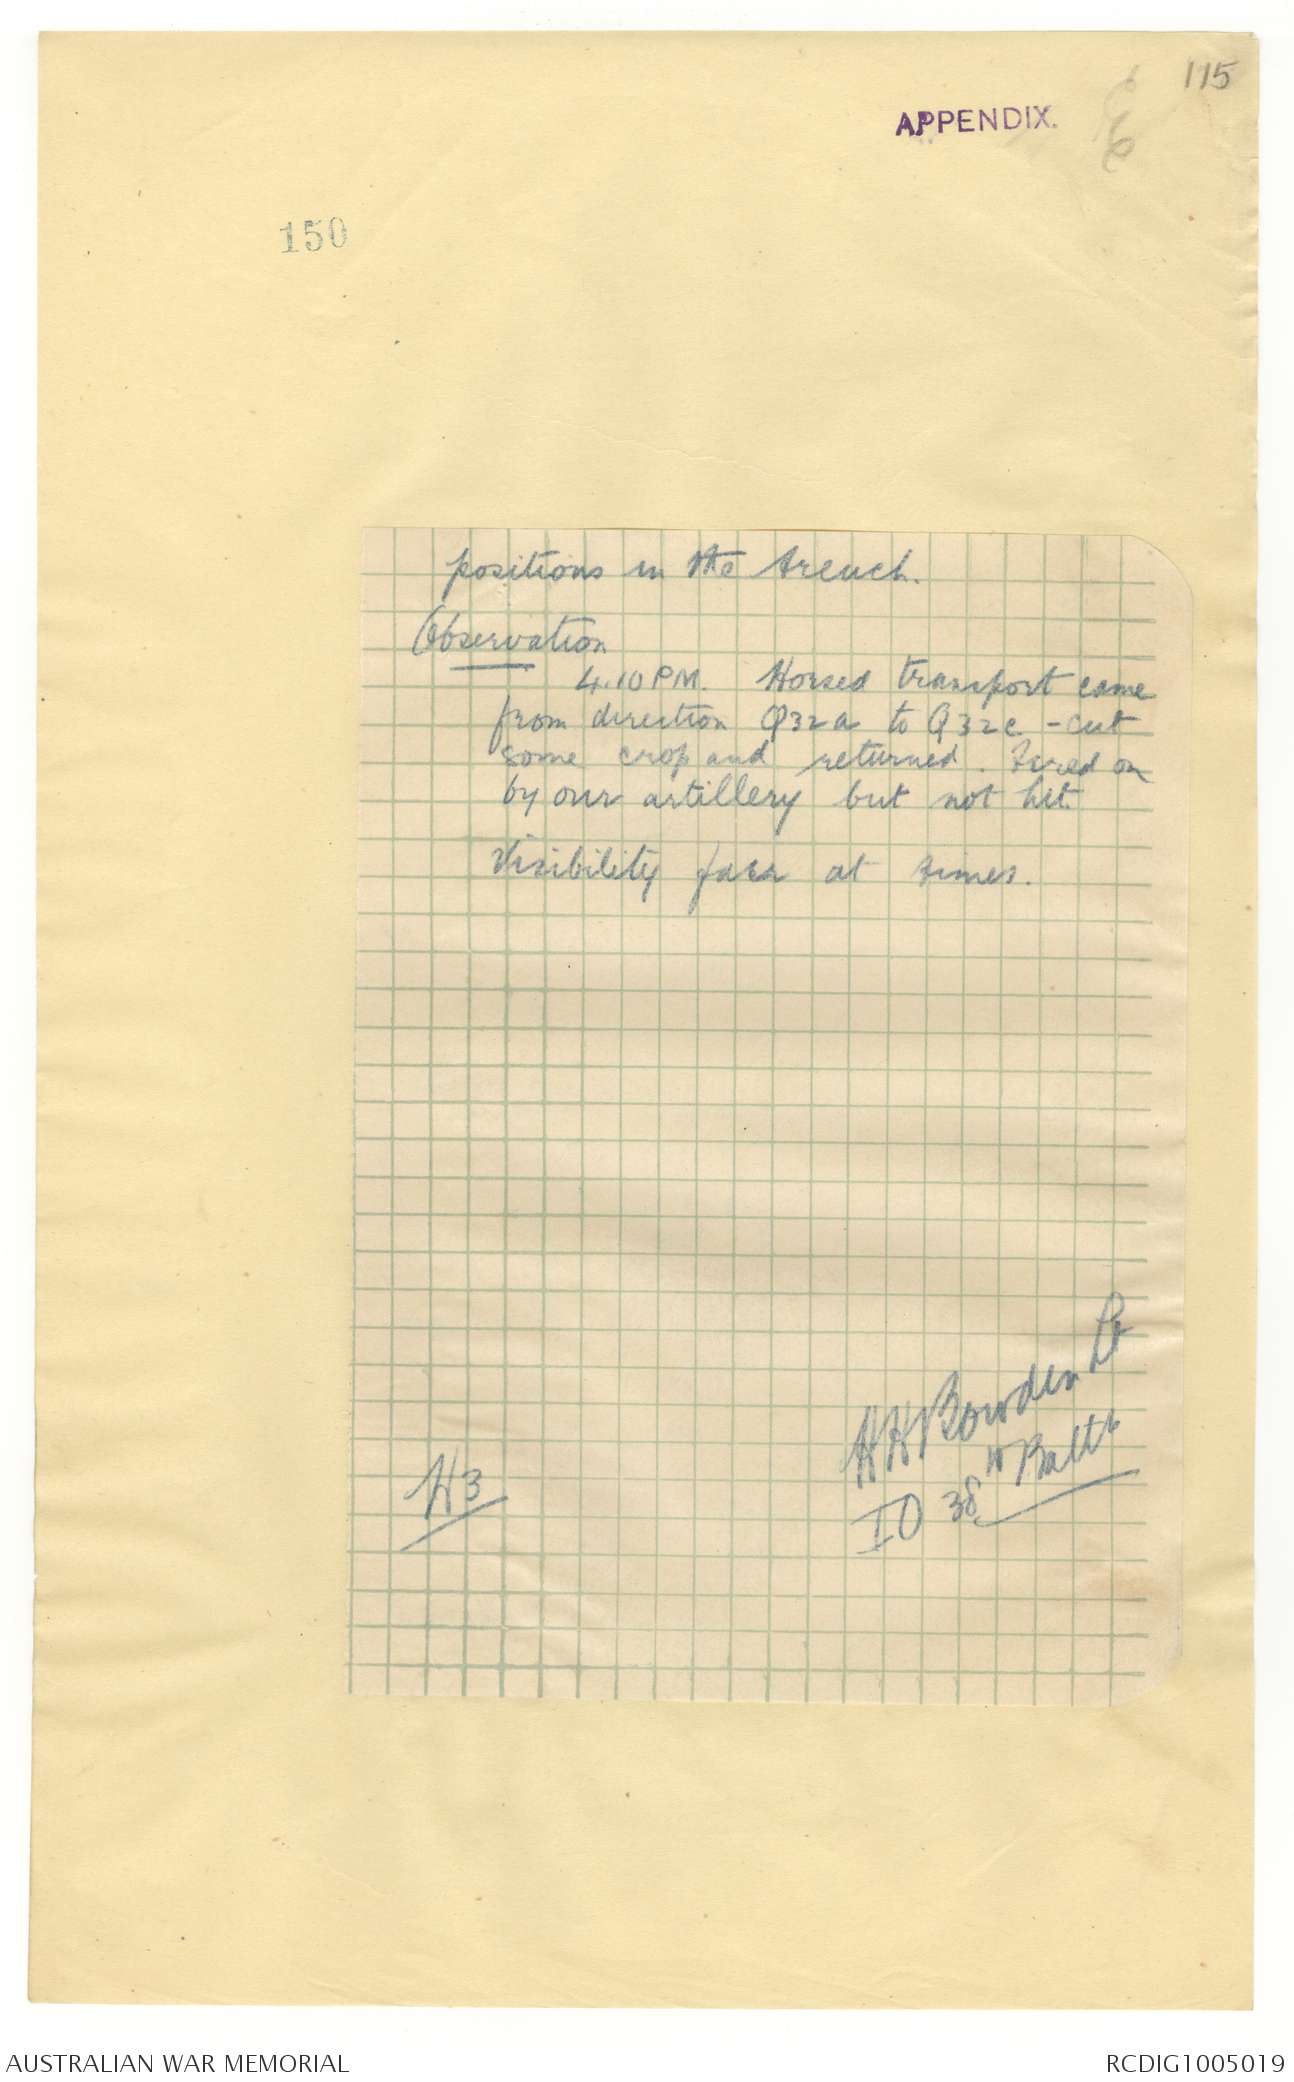 115
APPENDIX.
150
positions in the trench.
Observation
4.10 PM. Horsed transport came
from direction Q32a to Q32c - cut
some crop and returned. Fired on
by our artillery but not hit.
Visibility fair at times.
HHBowden Lt
IO 38th Battn
H3
AUSTRALIAN WAR MEMORIAL
RCDIG1005019